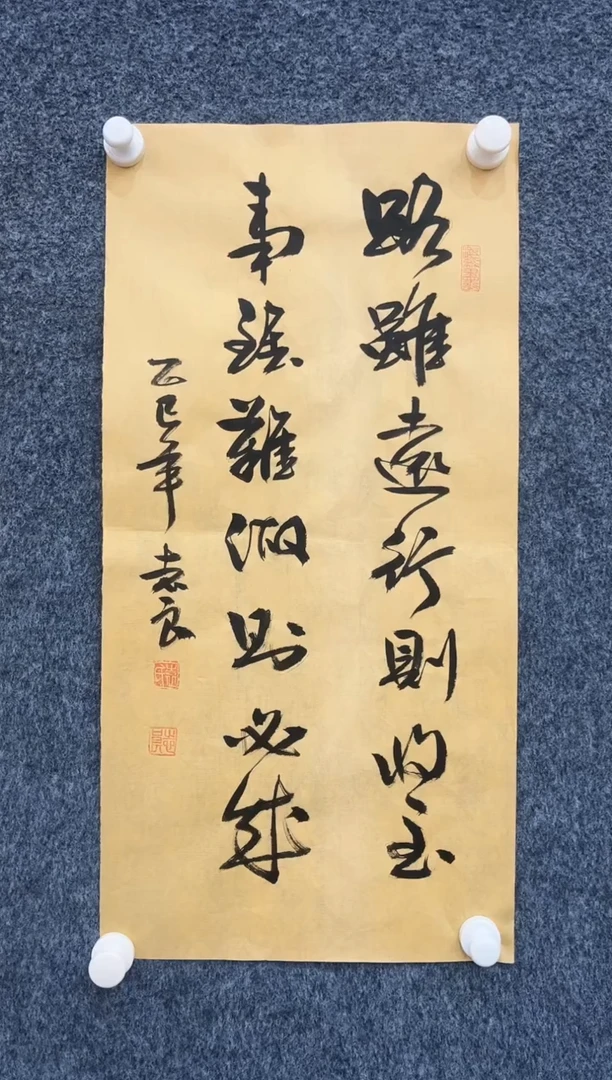 路雖遠行則將至
事雖難做則必成
乙巳年 志良
志良